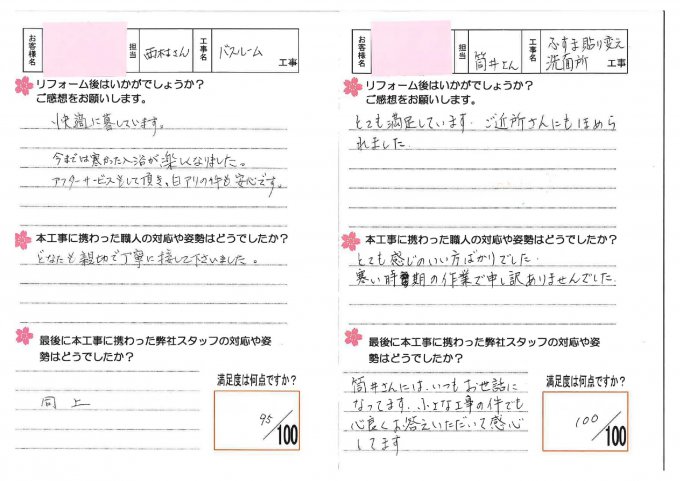 お客様名
担当
西村さん
工事名
バスルーム
工事
リフォーム後はいかがでしょうか？
ご感想をお願いします。
快適に暮しています。
今までは寒かった入浴が楽しくなりました。
アフターサービスもして頂き、白アリの件も安心です。
本工事に携わった職人の対応や姿勢はどうでしたか？
どなたも親切で丁寧に接して下さいました。
最後に本工事に携わった弊社スタッフの対応や姿
勢はどうでしたか？
満足度は何点ですか？
同上
95/100
お客様名
担当
筒井さん
工事名
ふすま貼り変え
洗面所
工事
リフォーム後はいかがでしょうか？
ご感想をお願いします。
とても満足しています。ご近所さんにもほめら
れました
本工事に携わった職人の対応や姿勢はどうでしたか？
とても感じのいい方ばかりでした。
寒い時期の作業で申し訳ありませんでした。
最後に本工事に携わった弊社スタッフの対応や姿
勢はどうでしたか？
満足度は何点ですか？
筒井さんには、いつもお世話に
なってます。小さな工事の件でも
心良くお答えいただいて感心
してます
100/100